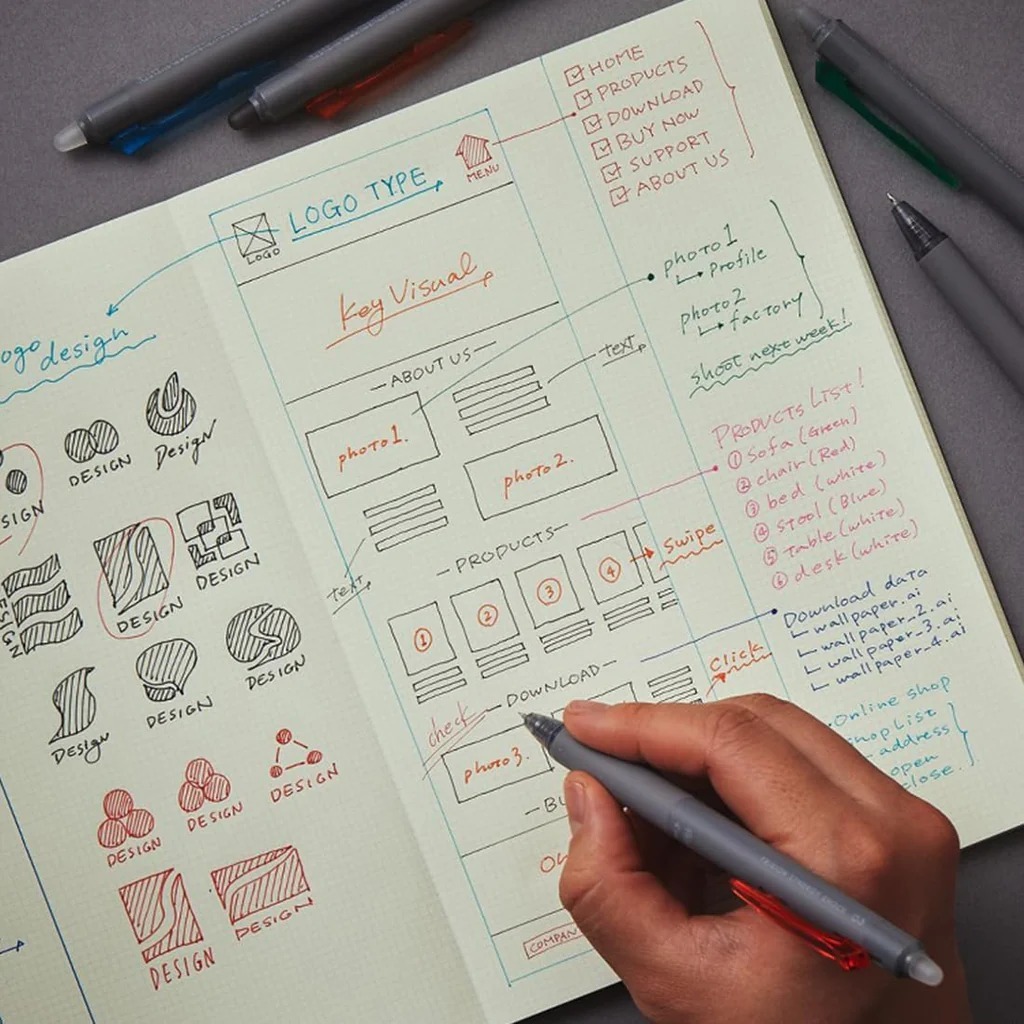 design
DESIGN
Design
DESIGN
DESIGN
Design
DESIGN
DESIGN
DESIGN
DESIGN
DESIGN
DESIGN
DESIGN
LOGO
LOGO TYPE
MENU
Key Visual
—ABOUT US—
photo1.
text
photo2.
text
—PRODUCTS—
① ② ③ ④
Swipe
—DOWNLOAD—
check
Click
photo3.
HOME
PRODUCTS
DOWNLOAD
BUY NOW
SUPPORT
ABOUT US
photo1
Profile
photo2
factory
shoot next week!
PRODUCTS LIST!
① Sofa (Green)
② chair (Red)
③ bed (white)
④ stool (Blue)
⑤ table (white)
⑥ desk (white)
Download data
wallpaper.ai
wallpaper_2.ai
wallpaper_3.ai
wallpaper_4.ai
Online shop
address
open